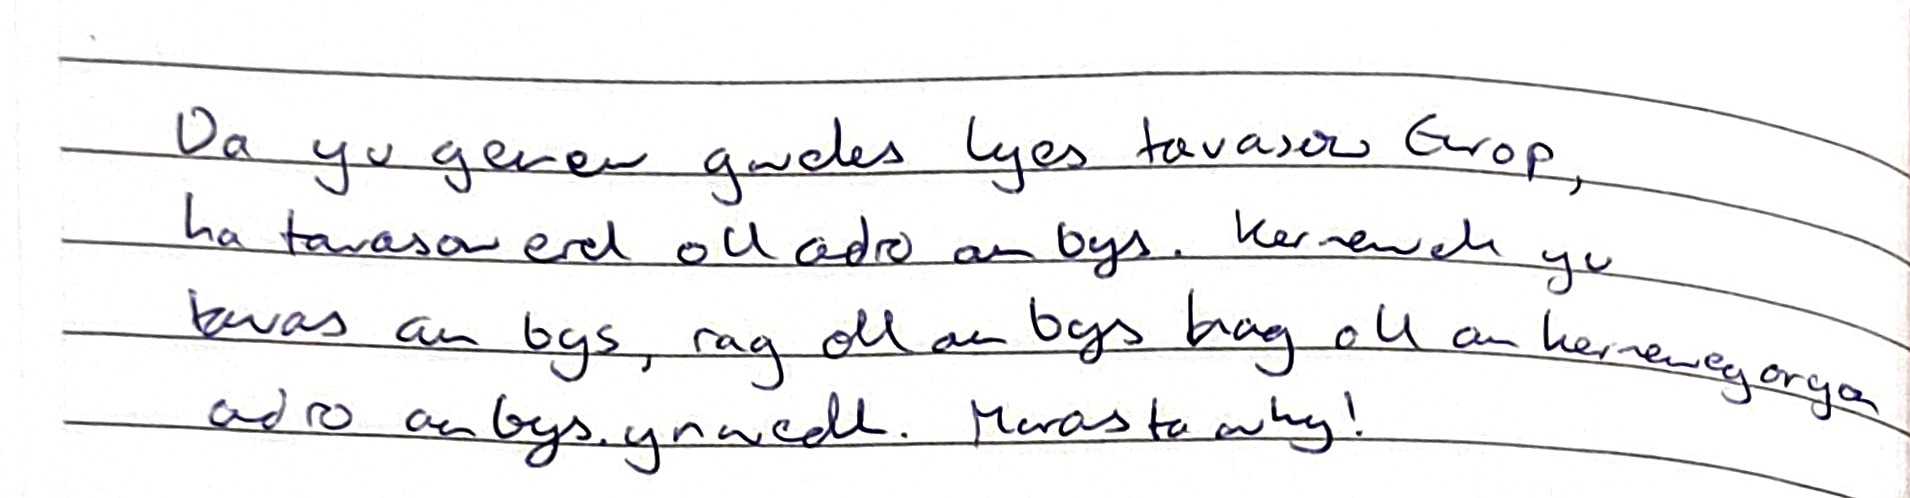 Da yu genen gweles lyes tavasow Europ,
ha tavasow erel oll adro an bys. Kernewek yu
tavas an bys, rag oll an bys hag oll an kernewegoryon
adro an bys. ynwedh. Meras ta why!